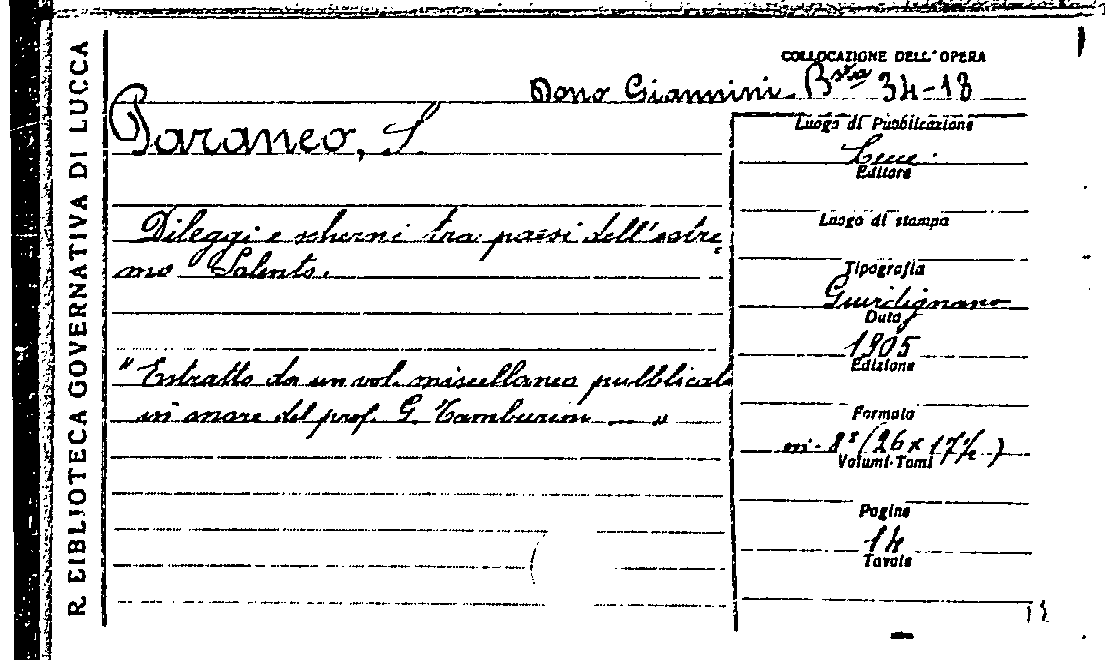 R. BIBLIOTECA GOVERNATIVA DI LUCCA
COLLOCAZIONE DELL'OPERA
Dono Giannini. Bsta 34-18
Paraneo, S.
Luogo di Pubblicazione
Lecce.
Editore
Dileggi e scherni tra paesi dell'estre
mo Salento.
Luogo di stampa
Tipografia
Giurdignano
Data
1905
Edizione
"Estratto da un vol. miscellaneo pubblicato
in onore del prof. G. Tamburini ... "
Formato
in-8° (26 x 17½)
Volumi-Tomi
Pagine
14
Tavole